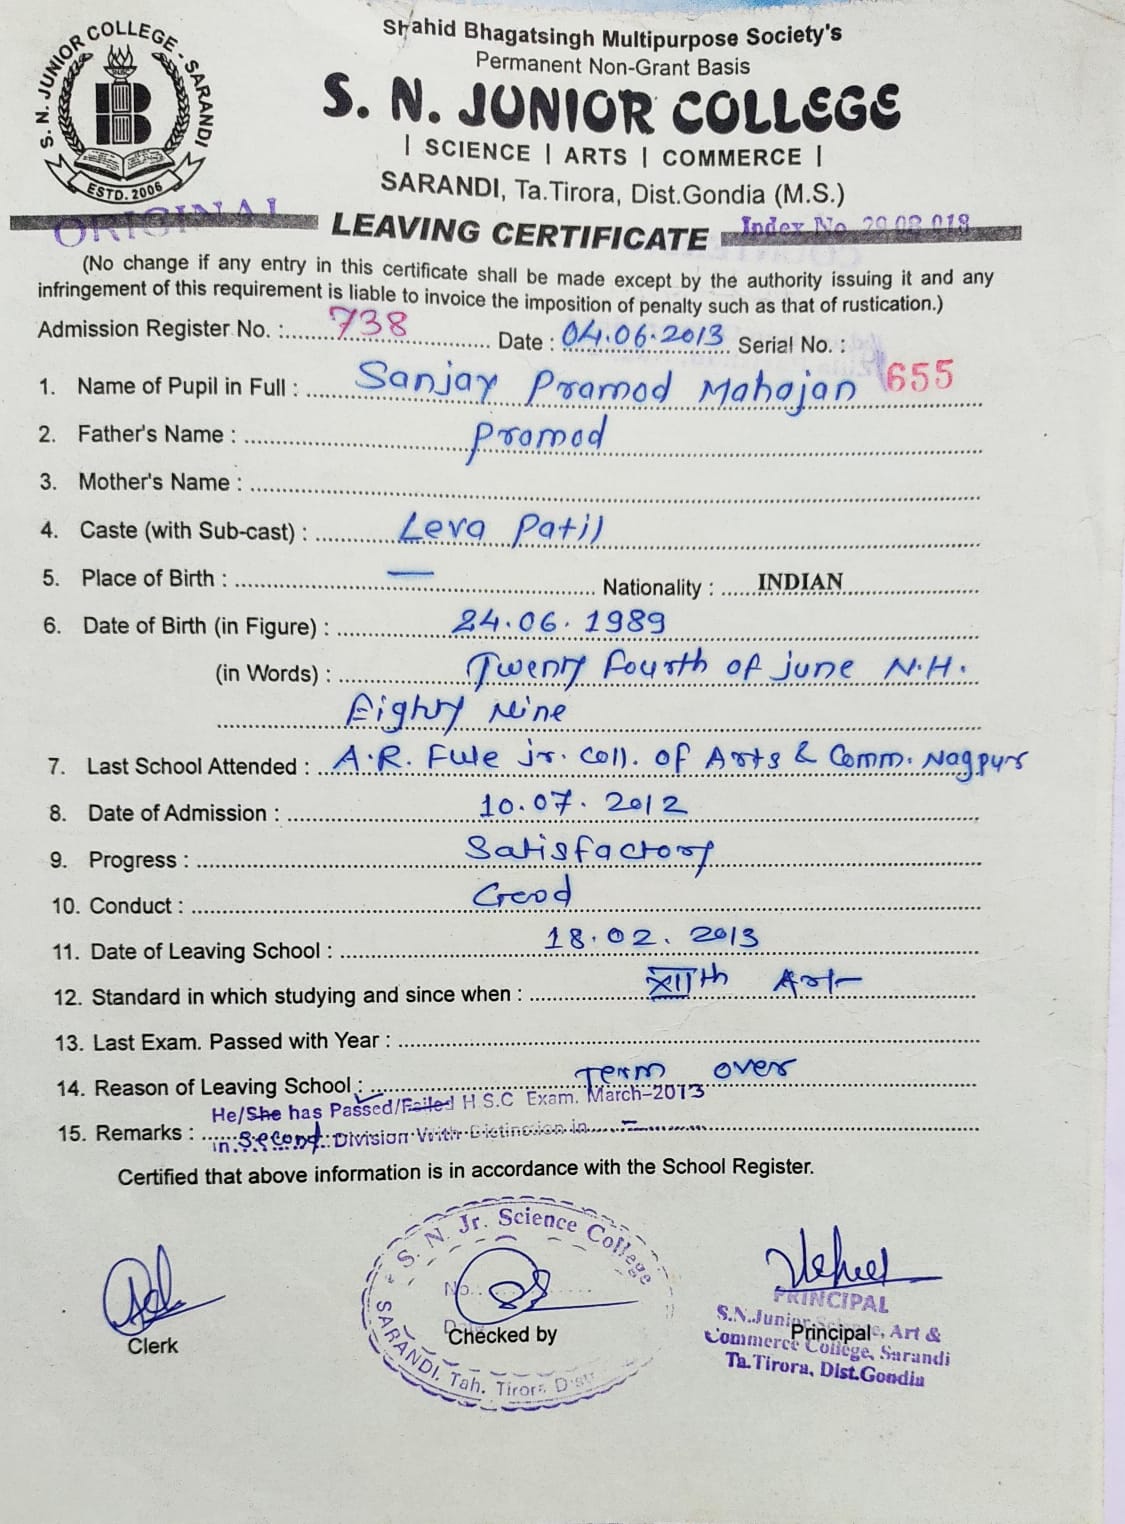 S. N. JUNIOR COLLEGE - SARANDI
ESTD. 2006
Shahid Bhagatsingh Multipurpose Society's
Permanent Non-Grant Basis
S. N. JUNIOR COLLEGE
| SCIENCE | ARTS | COMMERCE |
SARANDI, Ta.Tirora, Dist.Gondia (M.S.)
ORIGINAL LEAVING CERTIFICATE Index No. 29 08 018
(No change if any entry in this certificate shall be made except by the authority issuing it and any
infringement of this requirement is liable to invoice the imposition of penalty such as that of rustication.)
Admission Register No. : 738 Date : 04.06.2013 Serial No. :
1. Name of Pupil in Full : Sanjay Pramod Mahajan 655
2. Father's Name : Pramod
3. Mother's Name :
4. Caste (with Sub-cast) : Leva Patil
5. Place of Birth : — Nationality : INDIAN
6. Date of Birth (in Figure) : 24.06.1989
(in Words) : Twenty Fourth of june N.H.
Eighty Nine
7. Last School Attended : A.R. Fule jr. Coll. of Arts & Comm. Nagpur
8. Date of Admission : 10.07.2012
9. Progress : Satisfactory
10. Conduct : Good
11. Date of Leaving School : 18.02.2013
12. Standard in which studying and since when : XIIth Art
13. Last Exam. Passed with Year :
14. Reason of Leaving School : Term over
He/She has Passed/Failed H.S.C Exam. March-2013
15. Remarks : in Second Division With Distinction in –
Certified that above information is in accordance with the School Register.
S. N. Jr. Science College
No.
SARANDI, Tah. Tirora Distt
Clerk
Checked by
PRINCIPAL
Principal
S.N.Junior Science, Art &
Commerce College, Sarandi
Ta.Tirora, Dist.Gondia